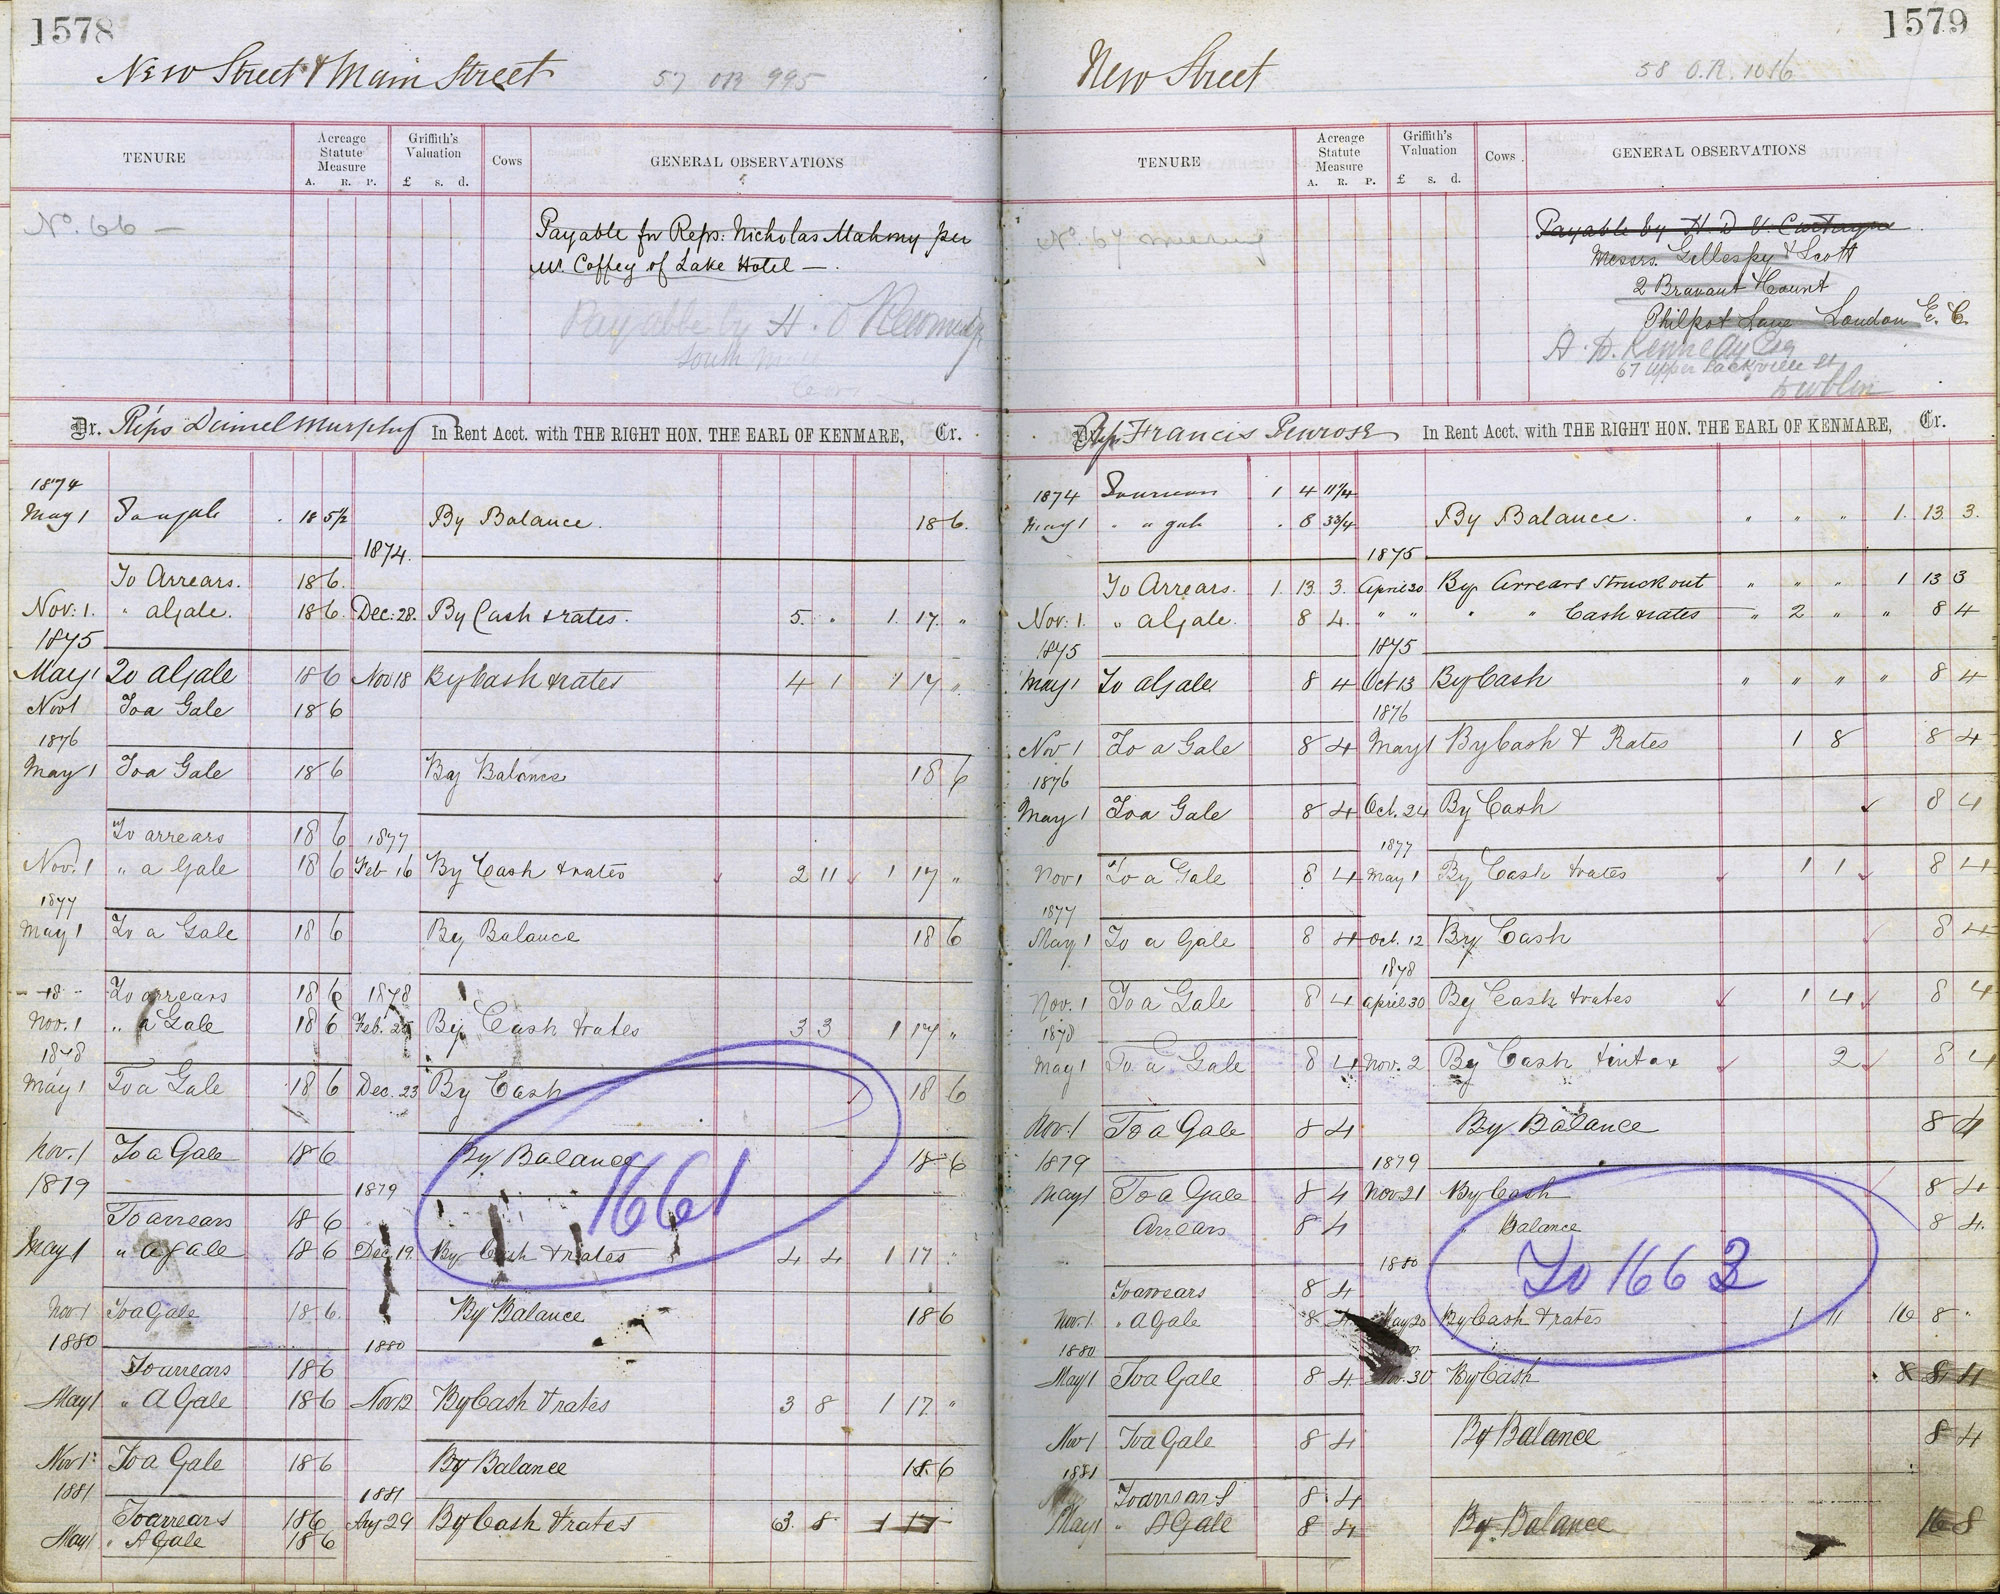 1578
New Street & Main Street 57 OR 995
TENURE Acreage Statute Measure A. R. P. Griffith's Valuation £ s. d. Cows GENERAL OBSERVATIONS
No. 66 —
Payable for Reps: Nicholas Mahony per
Mr. Coffey of Lake Hotel —.
Payable by H.
South
Dr. Reps Daniel Murphy In Rent Acct. with THE RIGHT HON. THE EARL OF KENMARE, Cr.
1874
May 1 18 5½ By Balance. 18 6.
1874.
To Arrears. 18 6.
Nov: 1. " a Gale. 18 6. Dec: 28. By Cash & rates. 5. " 1. 17. "
1875
May 1 To a Gale 18 6 Nov 18 By Cash & rates 4 1 1 17 "
Nov 1 To a Gale 18 6
1876
May 1 To a Gale 18 6 By Balance 18 6
To arrears 18 6 1877
Nov. 1 " a Gale 18 6 Feb 16 By Cash & rates 2 11 1 17 "
1877
May 1 To a Gale 18 6 By Balance 18 6
To arrears 18 6 1878
Nov. 1 " a Gale 18 6 Feb. 25 By Cash & rates 3 3 1 17 "
1878
May 1 To a Gale 18 6 Dec. 23 By Cash 18 6
Nov. 1 To a Gale 18 6 By Balance 18 6
1661
1879 1879
To arrears 18 6
May 1 " a gale 18 6 Dec. 19. By Cash & rates 4 4 1 17 "
Nov. 1 To a Gale 18 6. By Balance 18 6
1880 1880
To arrears 18 6
May 1 " A Gale 18 6 Nov 12 By Cash & rates 3 8 1 17. "
Nov 1 To a Gale 18 6 By Balance 18. 6
1881 1881
To arrears 18 6 Aug 29 By Cash & rates 3. 8 1 17
May 1 " A Gale 18 6
1579
New Street 58 O.R. 1016
TENURE Acreage Statute Measure A. R. P. Griffith's Valuation £ s. d. Cows. GENERAL OBSERVATIONS
No. 67
Payable by H. D. V.
Messrs. Gillespy & Scott
2 Brabant Court
Philpot Lane London E. C.
A. D. Kennedy Esq
67 Upper Sackville St
Dublin
Dr. Reps Francis Penrose In Rent Acct. with THE RIGHT HON. THE EARL OF KENMARE, Cr.
1874 1 4 11¼
May 1 " " gale . 8 3¾ By Balance. " " " 1. 13. 3.
1875
To Arrears. 1. 13. 3. April 20 By Arrears Struck out " " " 1 13 3
Nov: 1. " a Gale. 8 4. " " " " Cash & rates " 2 " " 8 4
1875 1875
May 1 To a Gale 8 4 Oct 13 By Cash " " " " 8 4
1876
Nov 1 To a Gale 8 4 May 1 By Cash & Rates 1 8 8 4
1876
May 1 To a Gale 8 4 Oct. 24 By Cash 8 4
1877
Nov 1 To a Gale 8 4 May 1 By Cash & rates 1 1 8 4
1877
May 1 To a Gale 8 4 Oct. 12 By Cash 8 4
1878
Nov. 1 To a Gale 8 4 April 30 By Cash & rates 1 4 8 4
1878
May 1 To a Gale 8 4 Nov. 2 By Cash & in tax 2 8 4
Nov. 1 To a Gale 8 4 By Balance 8 4
1879 1879
May 1 To a Gale 8 4 Nov 21 By Cash 8 4
Arrears 8 4 Balance 8 4.
To 1663
1880
To arrears 8 4
Nov. 1. " A Gale 8 4 May 20 By Cash & rates 1 11 16 8 "
1880
May 1 To a Gale 8 4. Nov. 30 By Cash 8 4
Nov 1 To a Gale 8 4 By Balance 8 4
1881
To arrears 8 4
May 1 " A Gale 8 4 By Balance 16 8